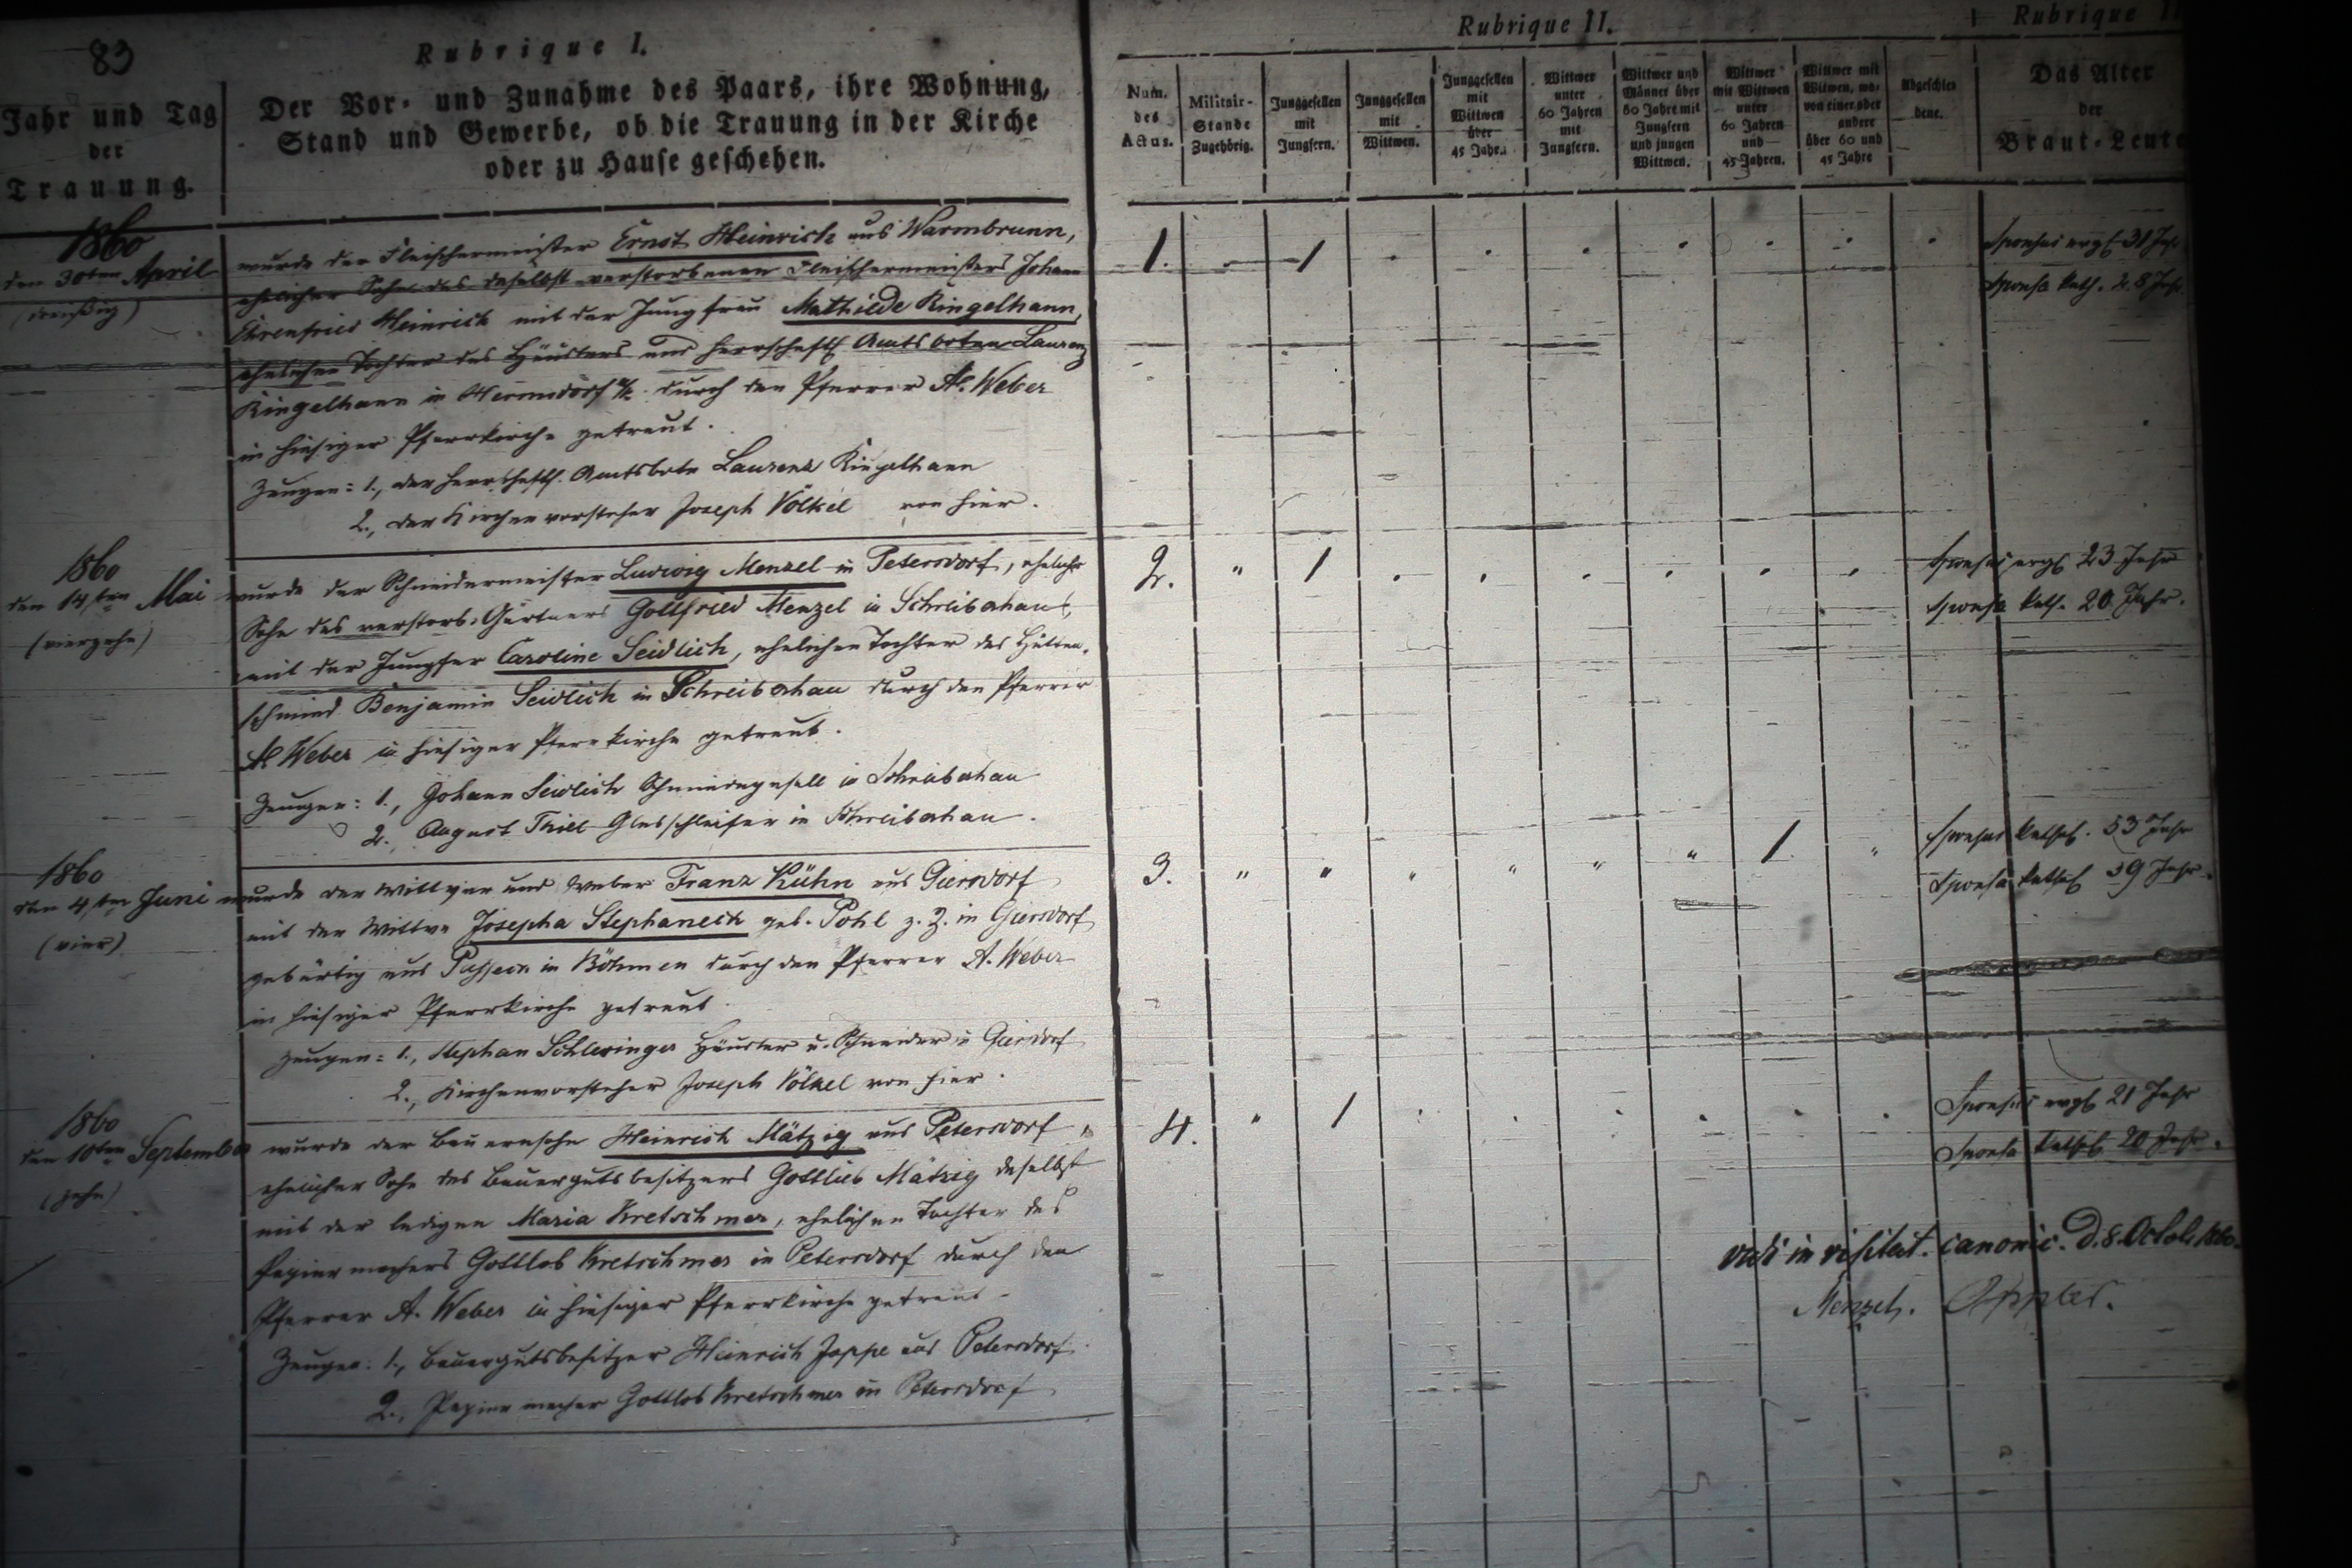 83
Rubrique I.
Jahr und Tag
der
Trauung.
Der Vor- und Zunahme des Paars, ihre Wohnung,
Stand und Gewerbe, ob die Trauung in der Kirche
oder zu Hause geschehen.
Rubrique II.
Num.
des
Actus.
Militair-
Stande
Zugehörig.
Junggesellen
mit
Jungfern.
Junggesellen
mit
Wittwen.
Junggesellen
mit
Wittwen
über
45 Jahr.
Wittwer
unter
60 Jahren
mit
Jungfern.
Wittwer und
Männer über
60 Jahre mit
Jungfern
und jungen
Wittwen.
Wittwer
mit Wittwen
unter
60 Jahren
und
45 Jahren.
Wittwer mit
Witwen, wo-
von einer oder
andere
über 60 und
45 Jahre
Abgeschie-
dene.
Rubrique
Das Alter
der
Braut-Leute
1860
den 30ten April
(dreißig)
wurde der Fleischermeister Ernst Heinrich aus Warmbrunn,
ehelicher Sohn des daselbst verstorbenen Fleischermeisters Johann
Ehrenfried Heinrich mit der Jungfrau Mathilde Ringelhann,
ehelichen Tochter des Häuslers und herrschaftl. Amtsboten Laurenz
Ringelhann in Hermsdorf u/K. durch den Pfarrer A. Weber
in hiesiger Pfarrkirche getraut.
Zeugen: 1., der herrschaftl. Amtsbote Laurenz Ringelhann
2., der Kirchenvorsteher Joseph Völkel von hier.
1. 1
Sponsus evgl. 31 Jahr
Sponsa kath. 28 Jahr
1860
den 14ten Mai
(vierzehn)
wurde der Schneidermeister Ludwig Menzel in Petersdorf, ehelicher
Sohn des verstorb. Gärtners Gottfried Menzel in Schreibershau,
mit der Jungfer Caroline Seidlich, ehelichen Tochter des Hütten-
schmied Benjamin Seidlich in Schreibershau durch den Pfarrer
A. Weber in hiesiger Pfarrkirche getraut.
Zeugen: 1., Johann Seidlich Schmiedegesell in Schreibershau
2., August Thiel Glasschleifer in Schreibershau.
2. " 1
Sponsus evgl. 23 Jahr
Sponsa kath. 20 Jahr.
1860
den 4ten Juni
(vier)
wurde der Wittwer und Weber Franz Kühn aus Giersdorf
mit der Wittwe Josepha Stephaneck geb. Pohl z. Z. in Giersdorf
gebürtig aus in Böhmen durch den Pfarrer A. Weber
in hiesiger Pfarrkirche getraut.
Zeugen: 1., Stephan Schlesinger Häusler u. Schneider in Giersdorf
2., Kirchenvorsteher Joseph Völkel von hier.
3. " " " " " " 1 "
Sponsus kathol. 53 Jahr
Sponsa kathol. 39 Jahr.
1860
den 10ten September
(zehn)
wurde der Bauernsohn Heinrich Mätzig aus Petersdorf,
ehelicher Sohn des Bauergutsbesitzers Gottlieb Mätzig daselbst
mit der ledigen Maria Kretschmer, ehelichen Tochter des
Papiermachers Gottlob Kretschmer in Petersdorf durch den
Pfarrer A. Weber in hiesiger Pfarrkirche getraut.
Zeugen: 1., Bauergutsbesitzer Heinrich Joppe aus Petersdorf
2., Papiermacher Gottlob Kretschmer in Petersdorf
4. " 1
Sponsus evgl. 21 Jahr
Sponsa kathol. 20 Jahr.
vidi in visitat. canonic. d. 8. Octob. 1860.
Menzel.